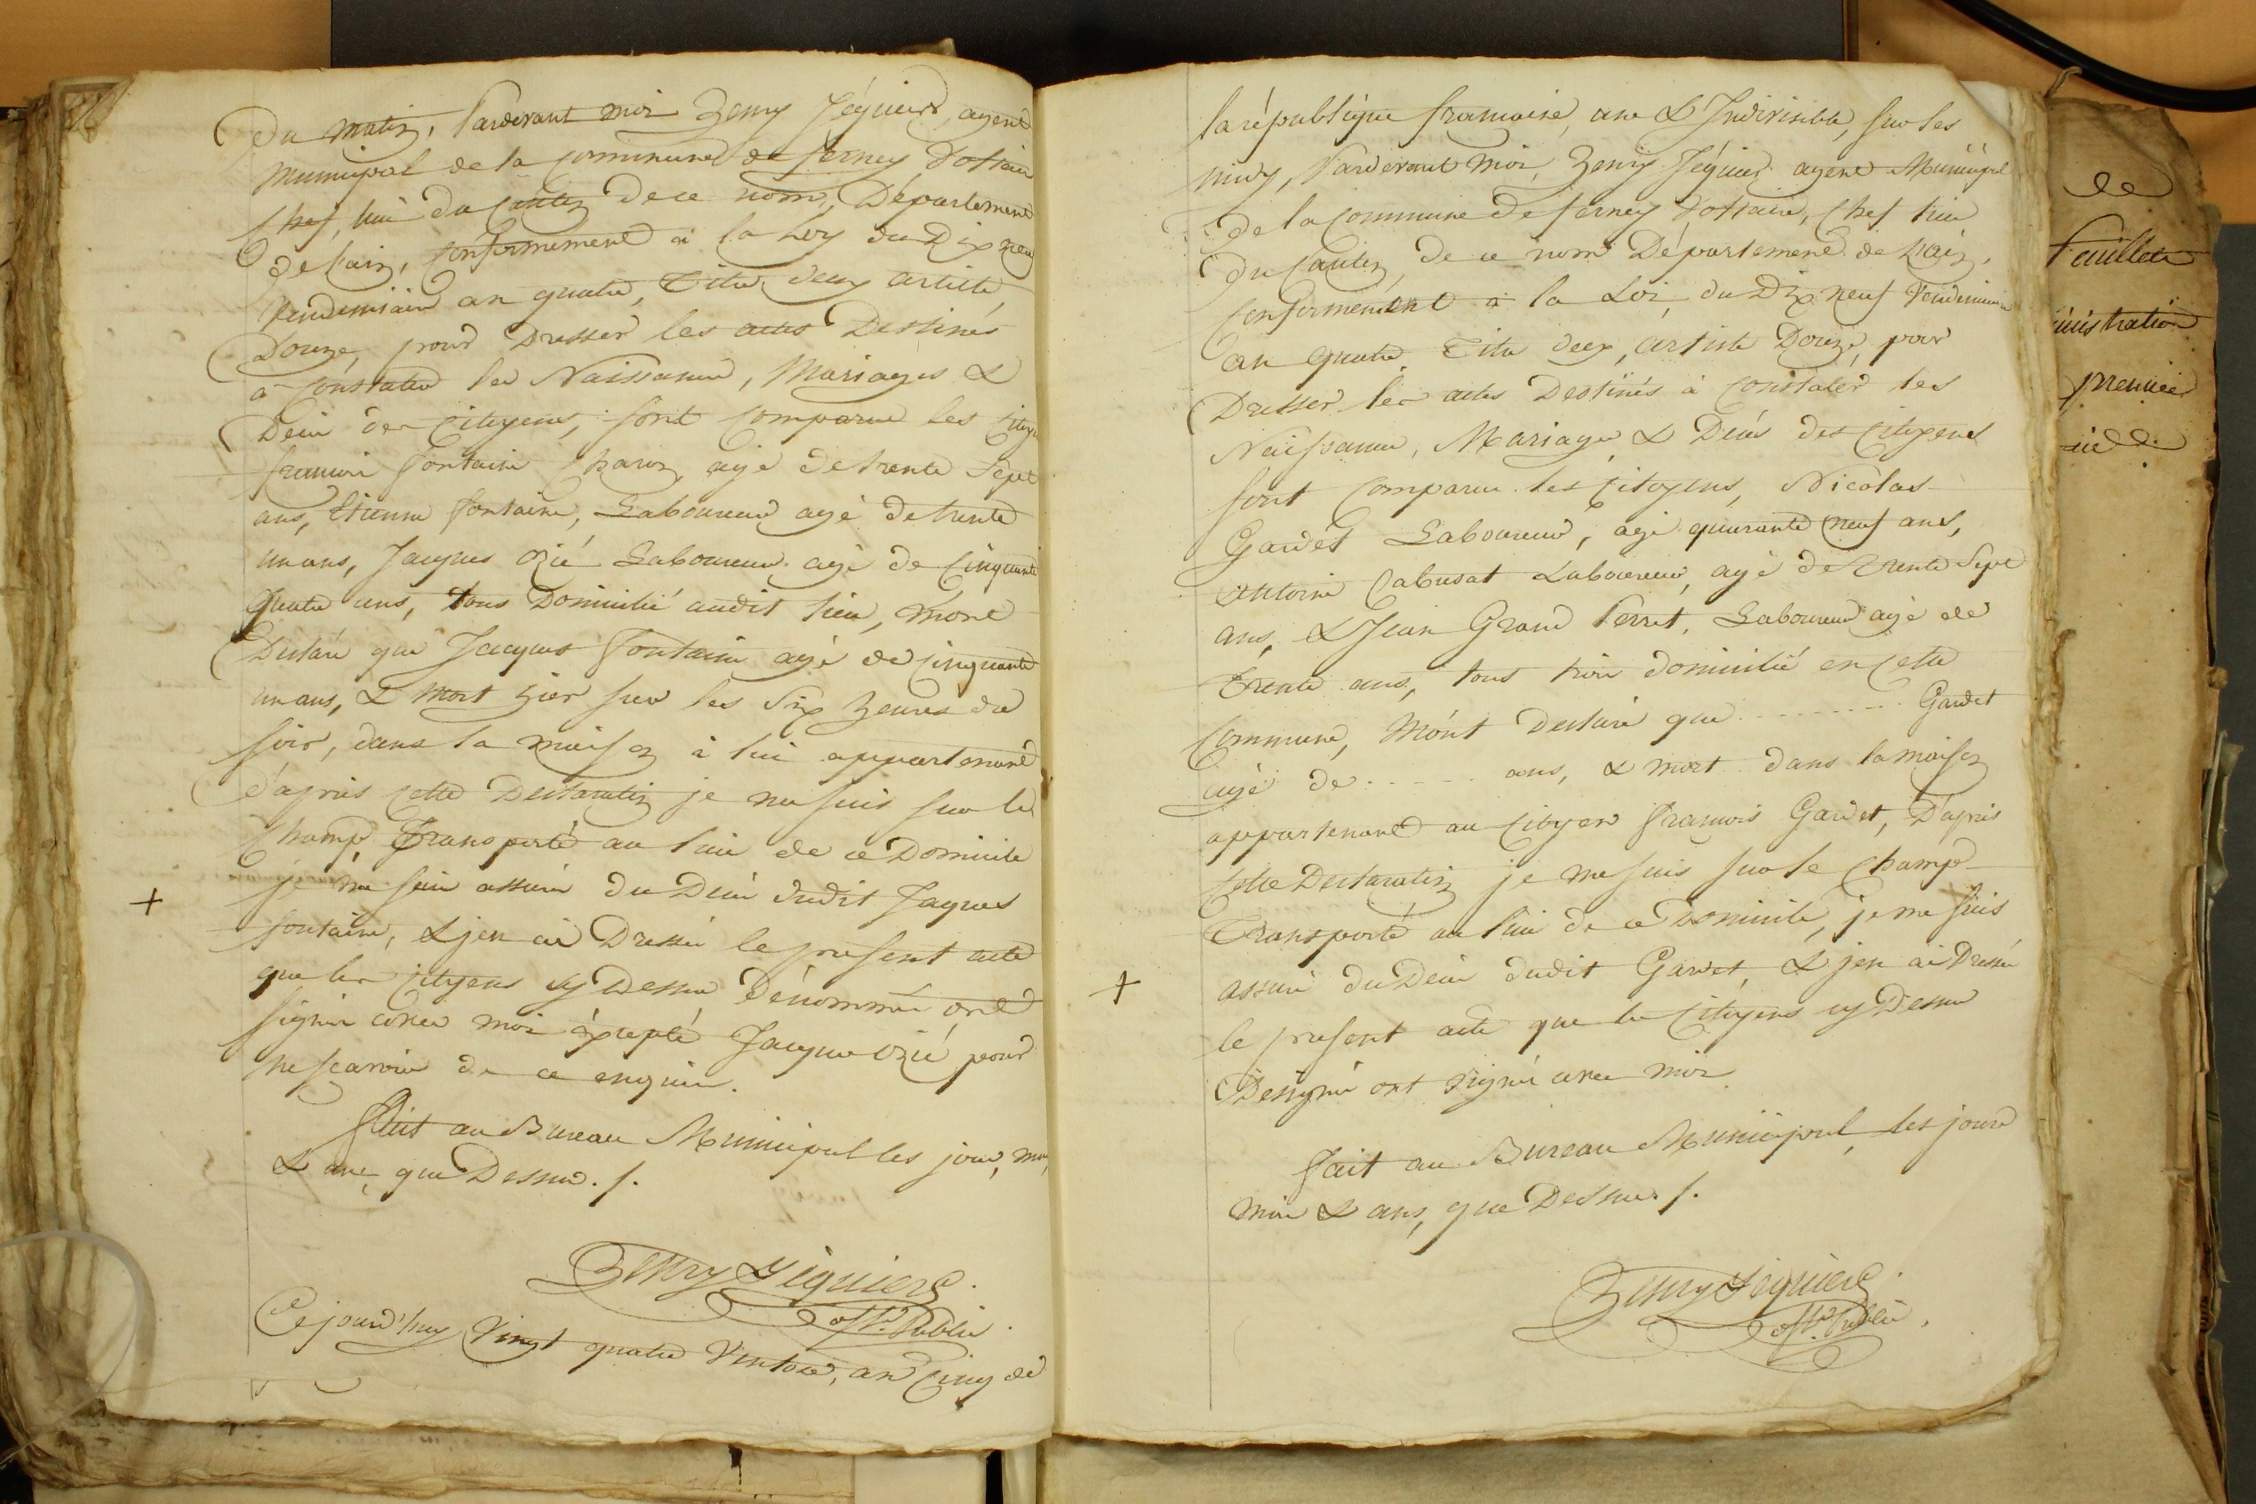 Du matin, Pardevant moi henry Jéquiers, agent
municipal de la commune de ferney Voltaire
Chef, lieu du Canton de ce nom, Département
de l'ain, conformement à la Loy du Dix neuf
Vendemiaire an quatre, Titre deux article
Douze, pour Dresser les actes Destinés
à Constater les Naissances, Mariages &
Décès des Citoyens, sont comparus les Citoyens
francois fontaine Charon agé de trente sept
ans, Etienne fontaine, Laboureur agé de trente
un ans, Jacques ozié Laboureur agé de Cinquante
quatre ans, tous Domicilié audit lieu, m'ont
Declaré que Jacques fontaine agé de cinquante
un ans, & mort hier sur les Six heures du
soir, dans la maison à lui appartenant
d'après cette Declaration je me suis sur le
Champ Transporté au lieu de ce Domicile
je me suis assuré du Décès dudit Jaques
fontaine, & j'en ai Dressé le present acte
que les Citoyens cy Dessus Dénommés ont
signés avec moi éxcepté Jacques ozié pour
ne scavoir de ce enquis.
Fait au Bureau Municipal les jour, mois,
& ans, que Dessus. /.
henry Jéquiers
off. Public.
Ce jourd'huy Vingt quatre Ventose, an Cinq de
la république francaise, une & Indivisible, sur les
midy, Pardevant moi, henry Jéquier agent Municipal
de la commune de ferney Voltaire, Chef lieu
du Canton, de ce nom Département de L'ain,
conformement à la Loi, du Dix neuf Vendemiaire
an quatre, Titre deux, article Douze, pour
Dresser les actes Destinés à constater les
Naissances, Mariages & Décés des Citoyens
sont comparus les citoyens, Nicolas
Gardet Laboureur, agé quarante neuf ans,
Antoine Cabusat Laboureur, agé de Trente sept
ans, & Jean Grand Perret, Laboureur agé de
Trente ans, tous trois domicilié en cette
commune, M'ont Declaré que - - - - - - - - Gardet
agé de - - - - - ans, & mort dans la maison
appartenant au Citoyen francois Gardet, D'après
cette Declaration je me suis sur le Champ
Transporté au lieu de ce Domicile, je me suis
assuré du Décès dudit Gardet & j'en ai Dressé
le present acte que les Citoyens cy Dessus
Designés ont signés avec moi
fait au Bureau Municipal, les jours
mois & ans, que Dessus /.
henry Jéquiers
off. Public.
+
+
de
feuillets
premier